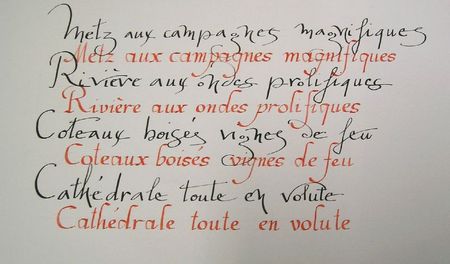 Metz aux campagnes magnifiques
Metz aux campagnes magnifiques
Rivière aux ondes prolifiques
Rivière aux ondes prolifiques
Coteaux boisés vignes de feu
Coteaux boisés vignes de feu
Cathédrale toute en volute
Cathédrale toute en volute